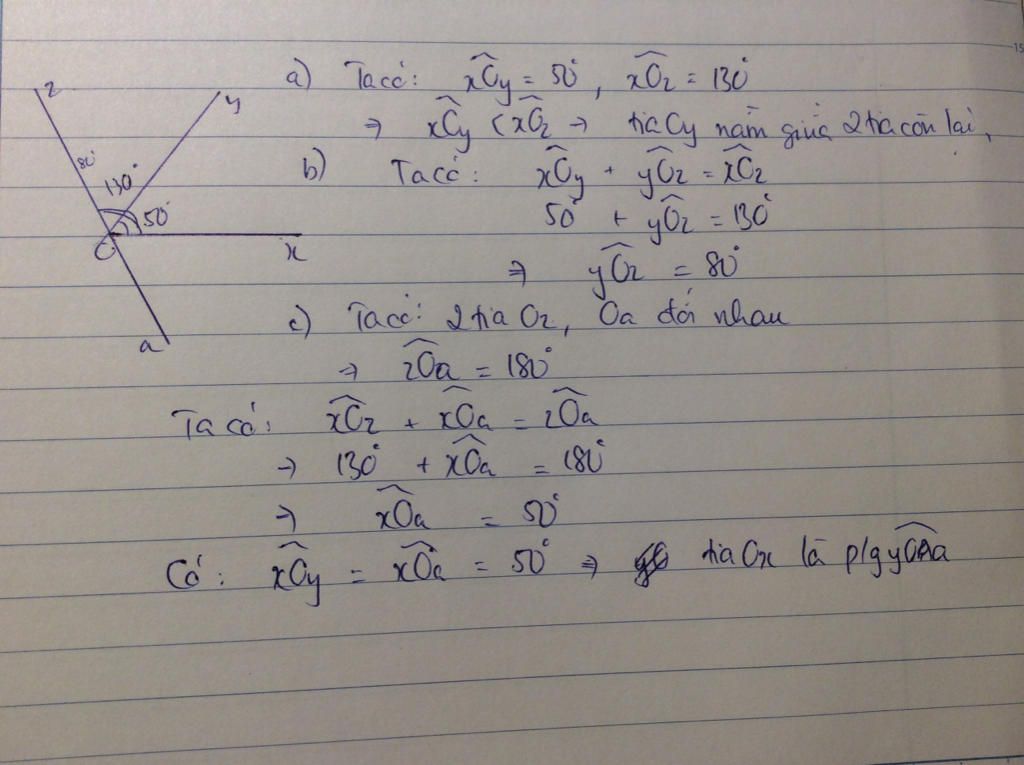 z
y
80°
130°
50°
O
x
a
a) Ta có: xÔy = 50°, xÔz = 130°
⇒ xÔy < xÔz → tia Oy nằm giữa 2 tia còn lại,
b) Ta có: xÔy + yÔz = xÔz
50° + yÔz = 130°
⇒ yÔz = 80°
c) Ta có: 2 tia Oz, Oa đối nhau
→ zÔa = 180°
Ta có: xÔz + xÔa = zÔa
→ 130° + xÔa = 180°
→ xÔa = 50°
Có: xÔy = xÔa = 50° ⇒ tia Ox là p/g yÔa
15